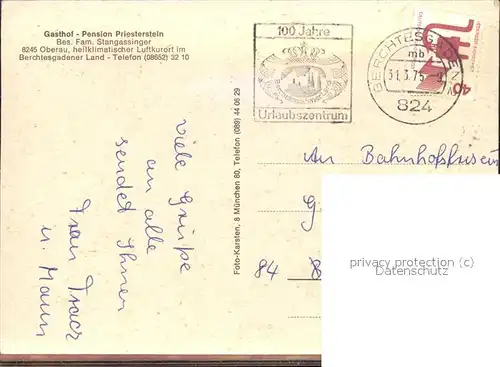 Gasthof - Pension Priesterstein
Bes. Fam. Stangassinger
8245 Oberau, heilklimatischer Luftkurort im
Berchtesgadener Land - Telefon (08652) 32 10
100 Jahre
Urlaubszentrum
BERCHTESGADEN
mb
31.3.75
824
40
Foto-Karsten, 8 München 80, Telefon (089) 44 06 29
viele Grüße
an alle
sendet Ihnen
Frau
u. Mann
An Bahnhofsfriseur
G
84 8
privacy protection (c)
Datenschutz